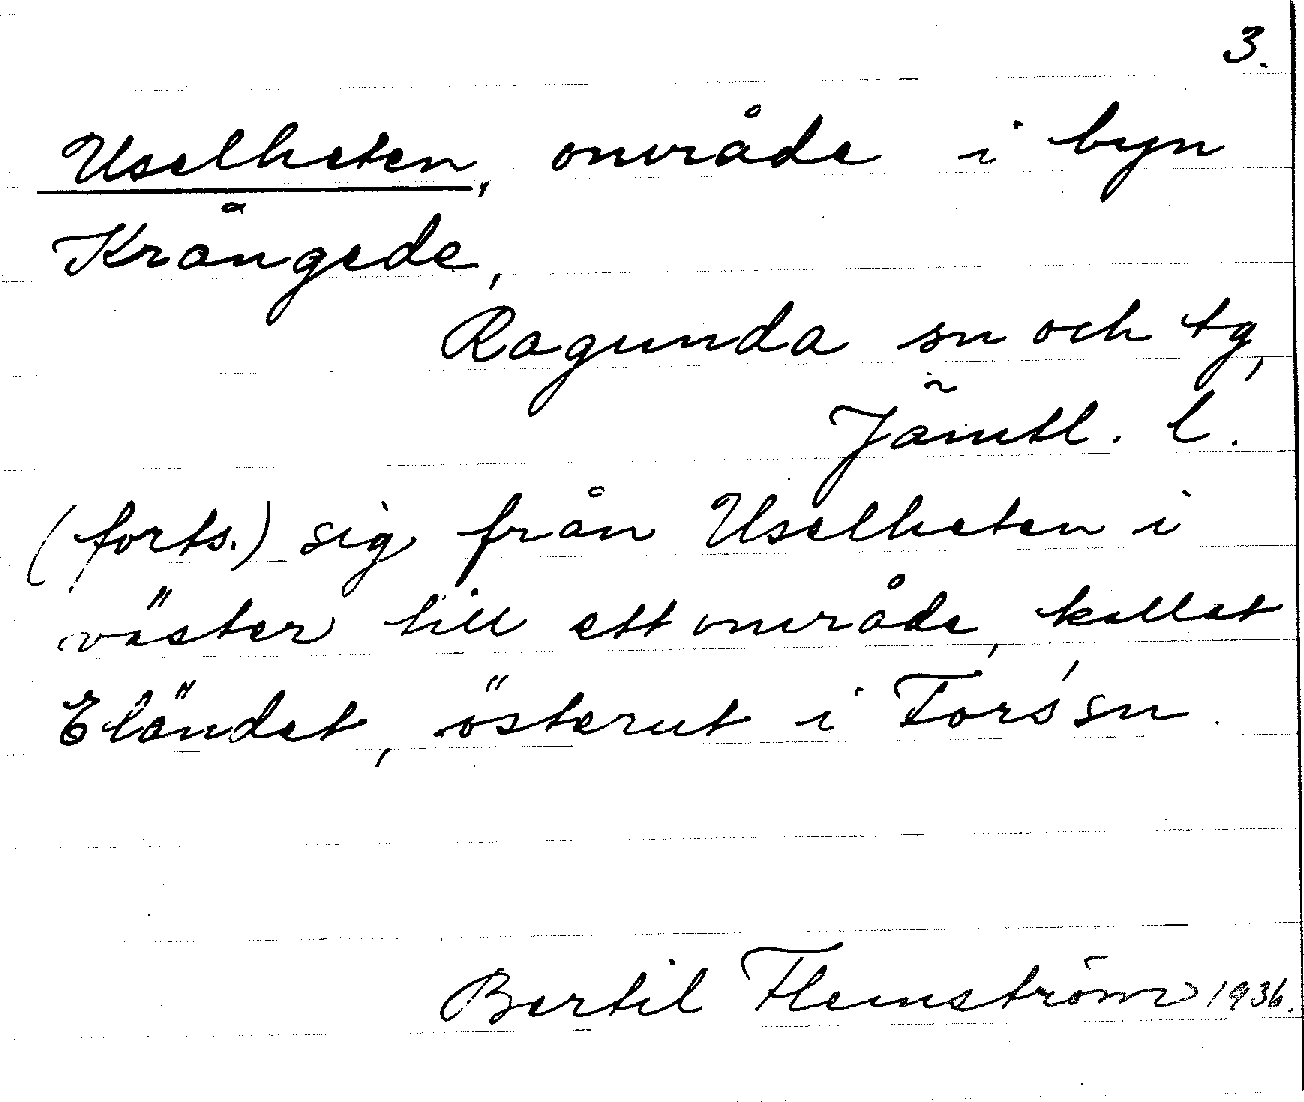 3.
Uselheten, område i byn
Krångede,
Ragunda sn och tg,
Jämtl. l.
(forts.) sig från Uselheten i
väster till ett område, kallat
Eländet, österut i Fors sn.
Bertil Flemström 1936.